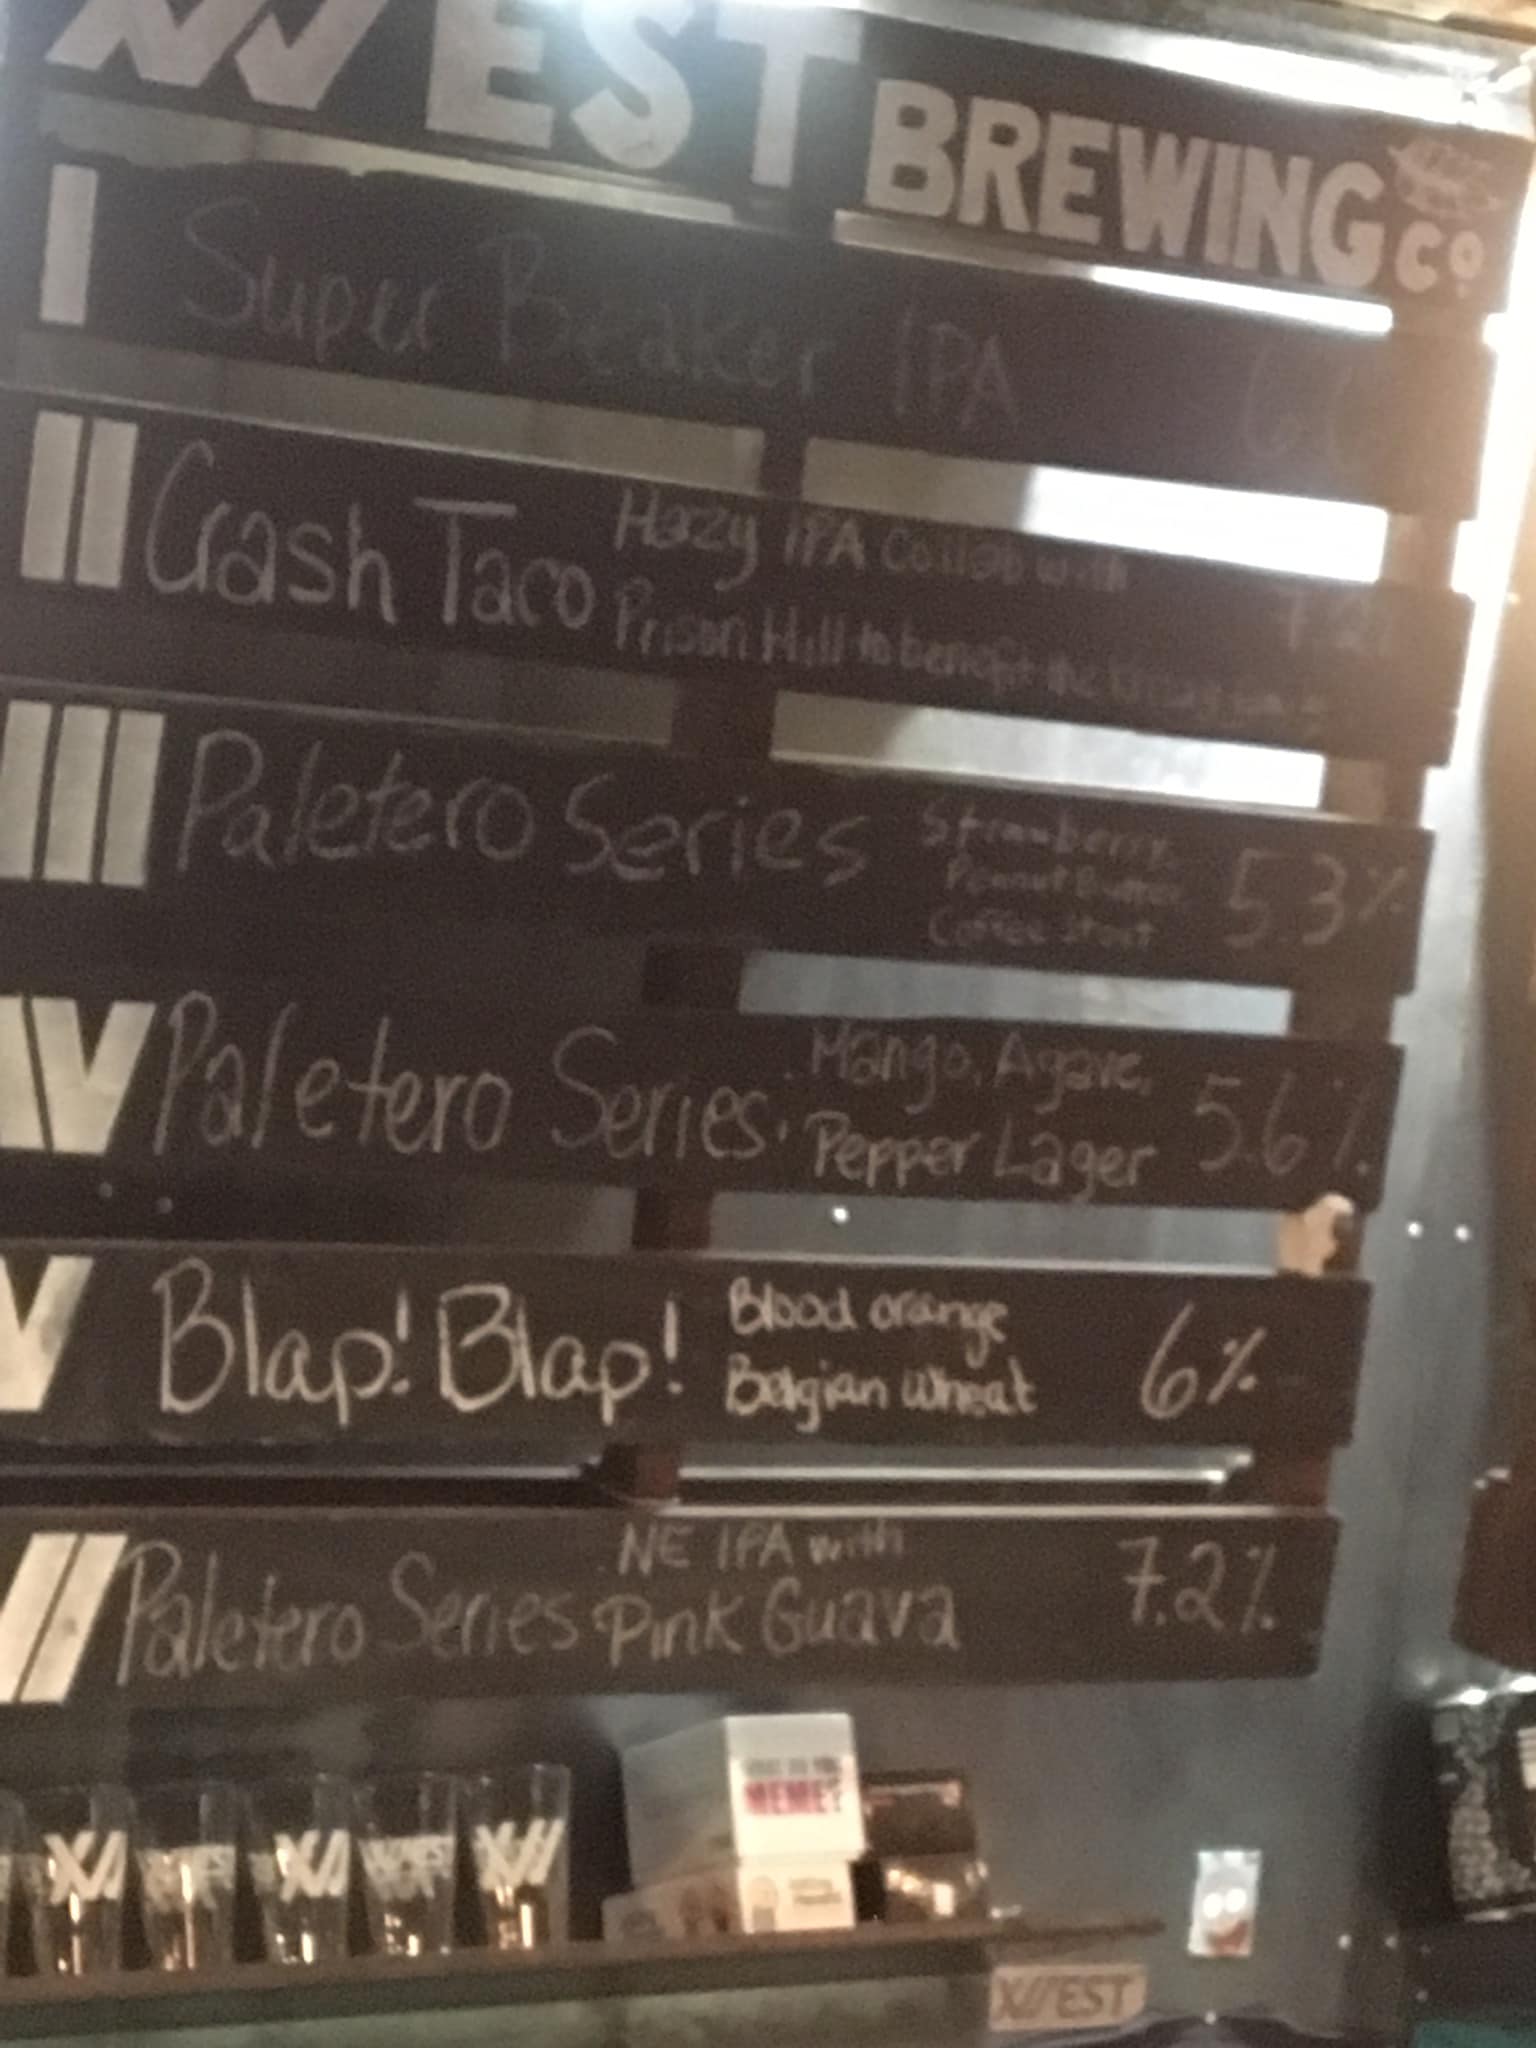 WEST BREWING CO.
I Super Beaker IPA
II Crash Taco Hazy IPA Collab with
Prison Hill to benefit the
7.2%
III Paletero Series Strawberry
Peanut Butter
Coffee Stout
5.3%
IV Paletero Series. Mango, Agave,
Pepper Lager
5.6%
V Blap! Blap! Blood orange
Belgian wheat
6%
Paletero Series NE IPA with
Pink Guava
7.2%
MEME?
WEST